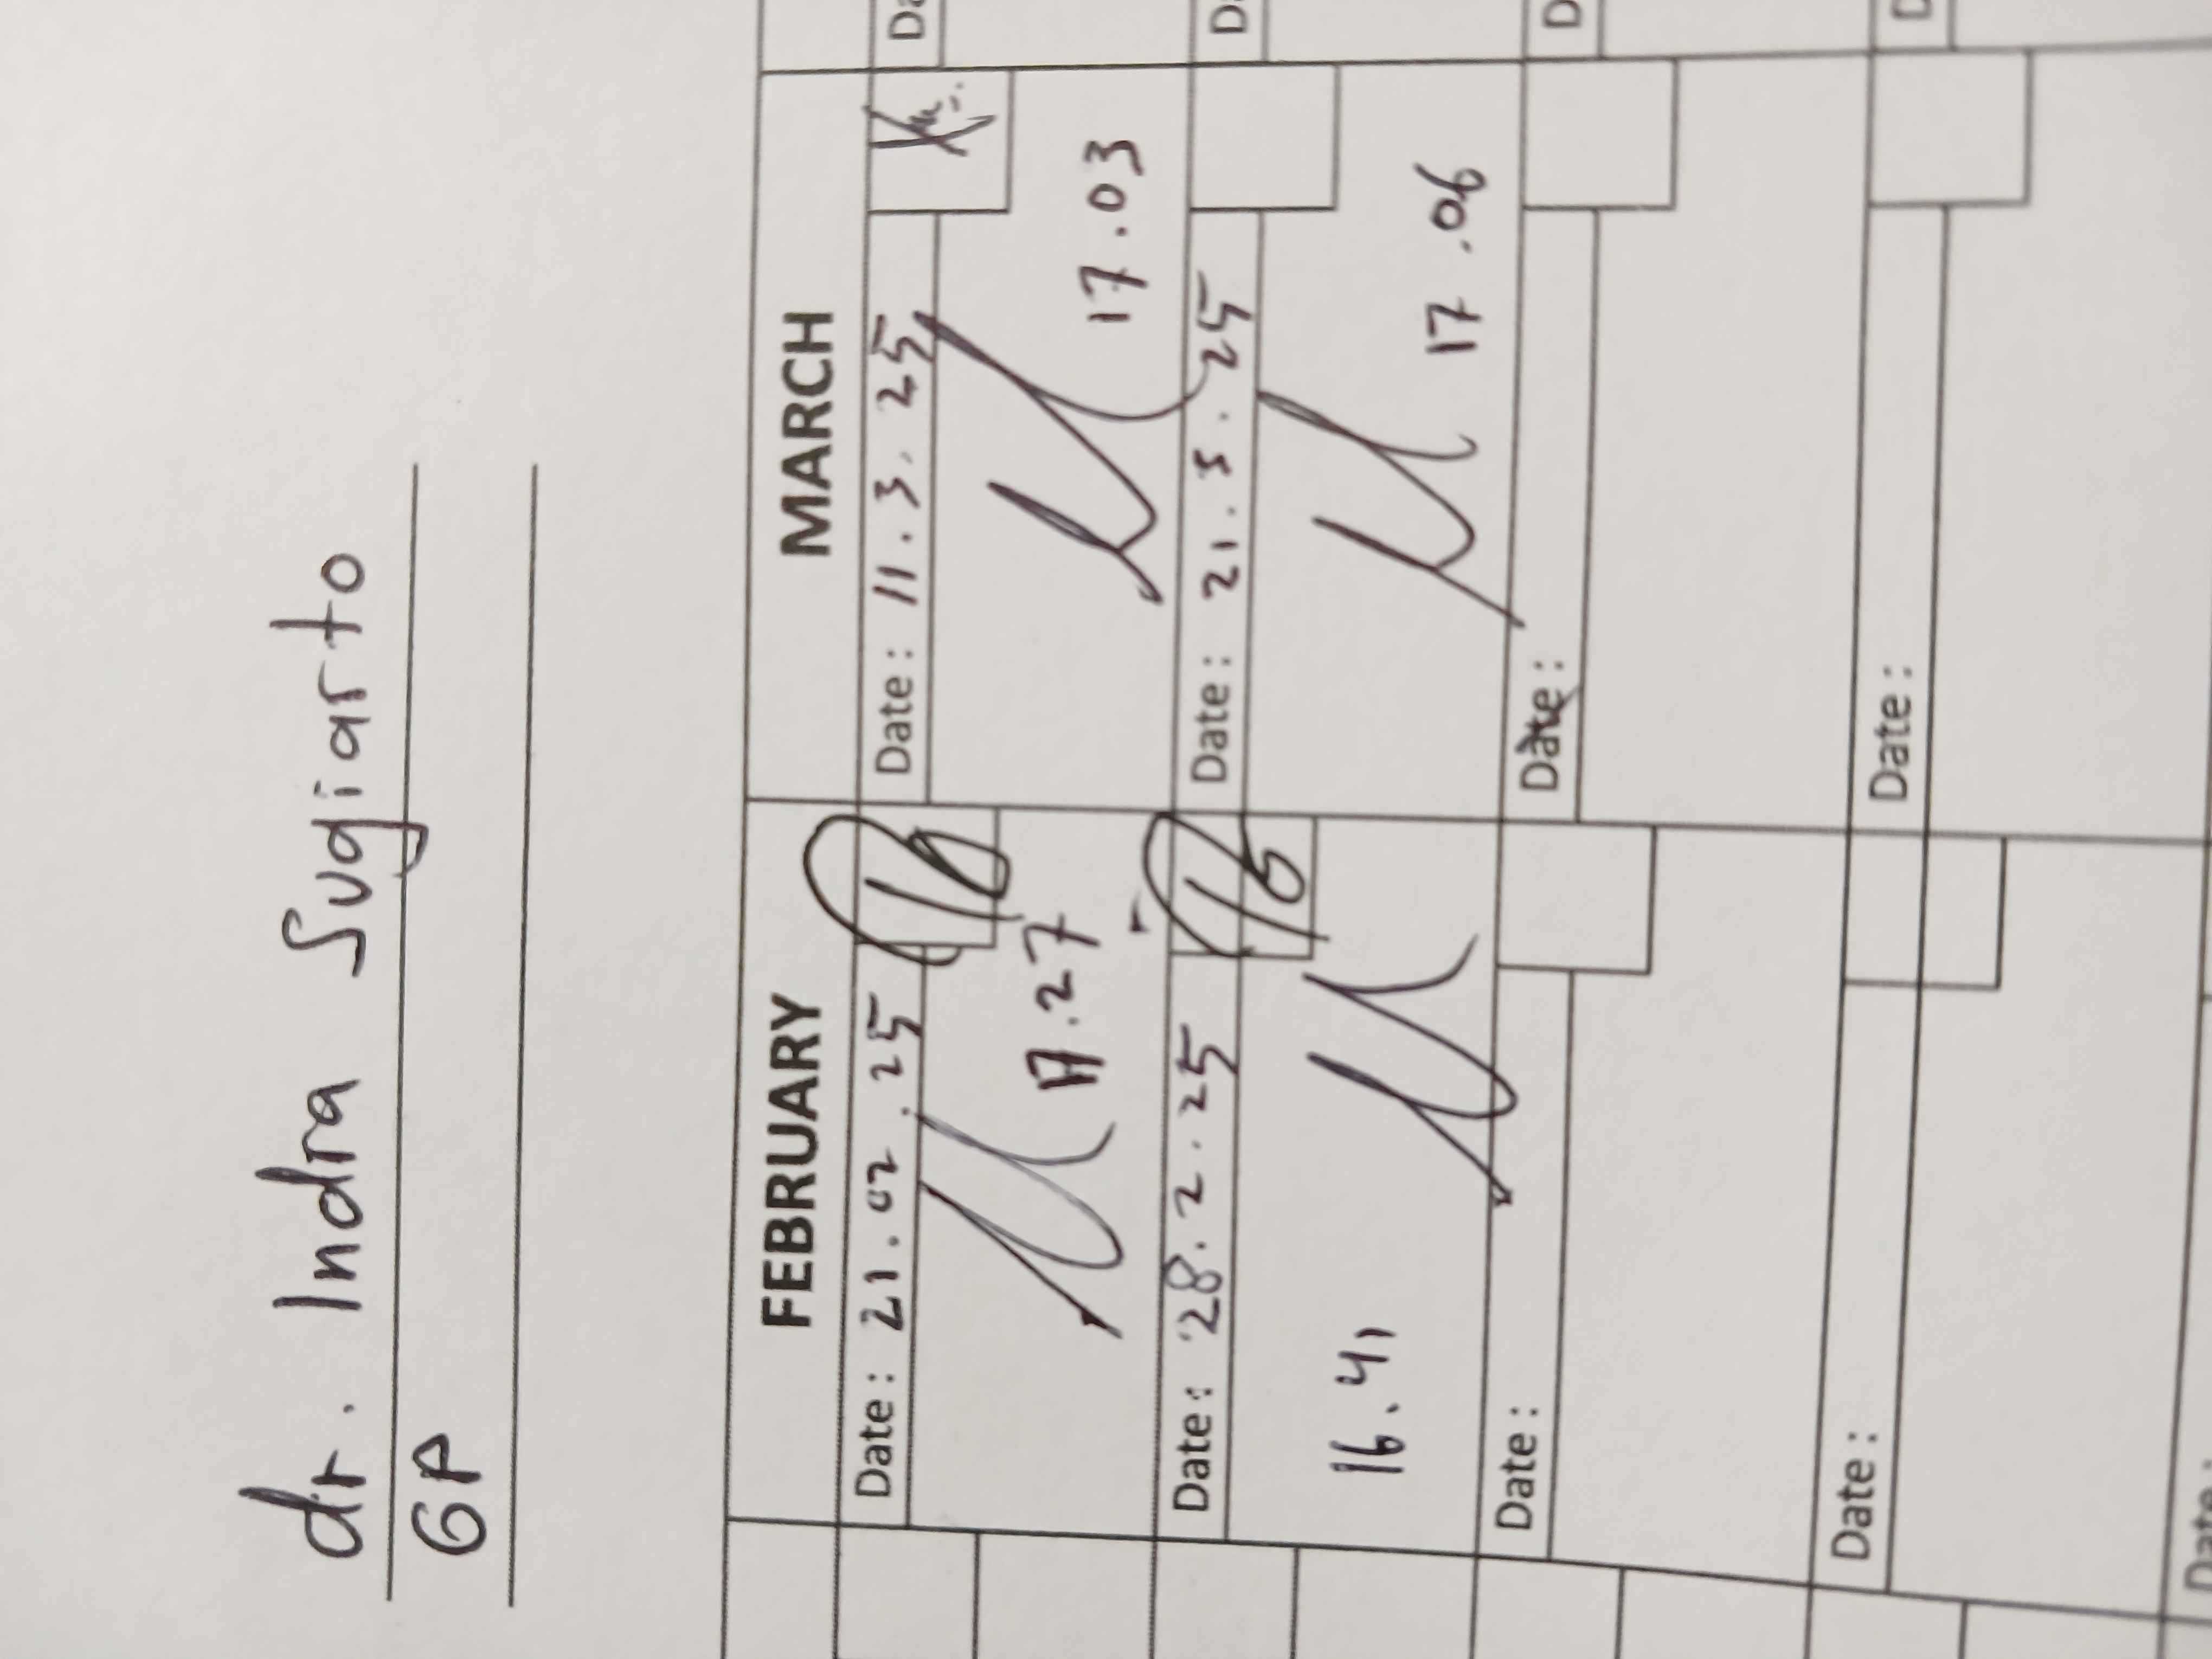 dr. Indra Sugiarto
GP
FEBRUARY MARCH
Date : 21.02.25 Date : 11.3.25
17.27 17.03
Date : 28.2.25 Date : 21.3.25
16.41 17.06
Date : Date :
Date : Date :